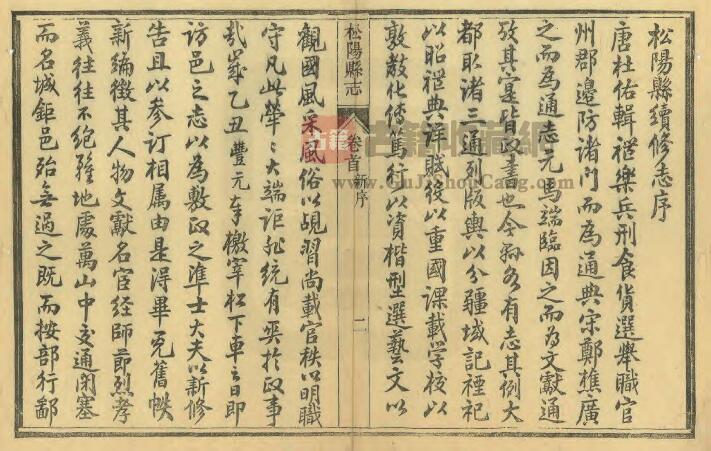 松陽縣續修志序
唐杜佑輯禮樂兵刑食貨選舉職官
州郡邊防諸門而爲通典宋鄭樵廣
之而爲通志元馬端臨因之而爲文獻通
攷其實皆政書也今縣各有志其例大
都取諸三通列版輿以分疆域記禋祀
以昭禮典詳賦役以重國課載學校以
敦教化傳篤行以資楷型選藝文以
松陽縣志
卷首 新序
二
觀國風采風俗以覘習尚載官秩以明職
守凡此犖々大端詎非統有與於政事
哉歲乙丑豐元奉檄宰松下車之日即
訪邑之志以爲敷政之準士大夫以新修
告且以參訂相属由是得畢覓舊帙
新編徵其人物文獻名宦經師節烈孝
義往往不絶雖地處萬山中交通閉塞
而名城鉅邑殆無過之既而按部行鄙
古籍收藏网
www.GuJiShouCang.com